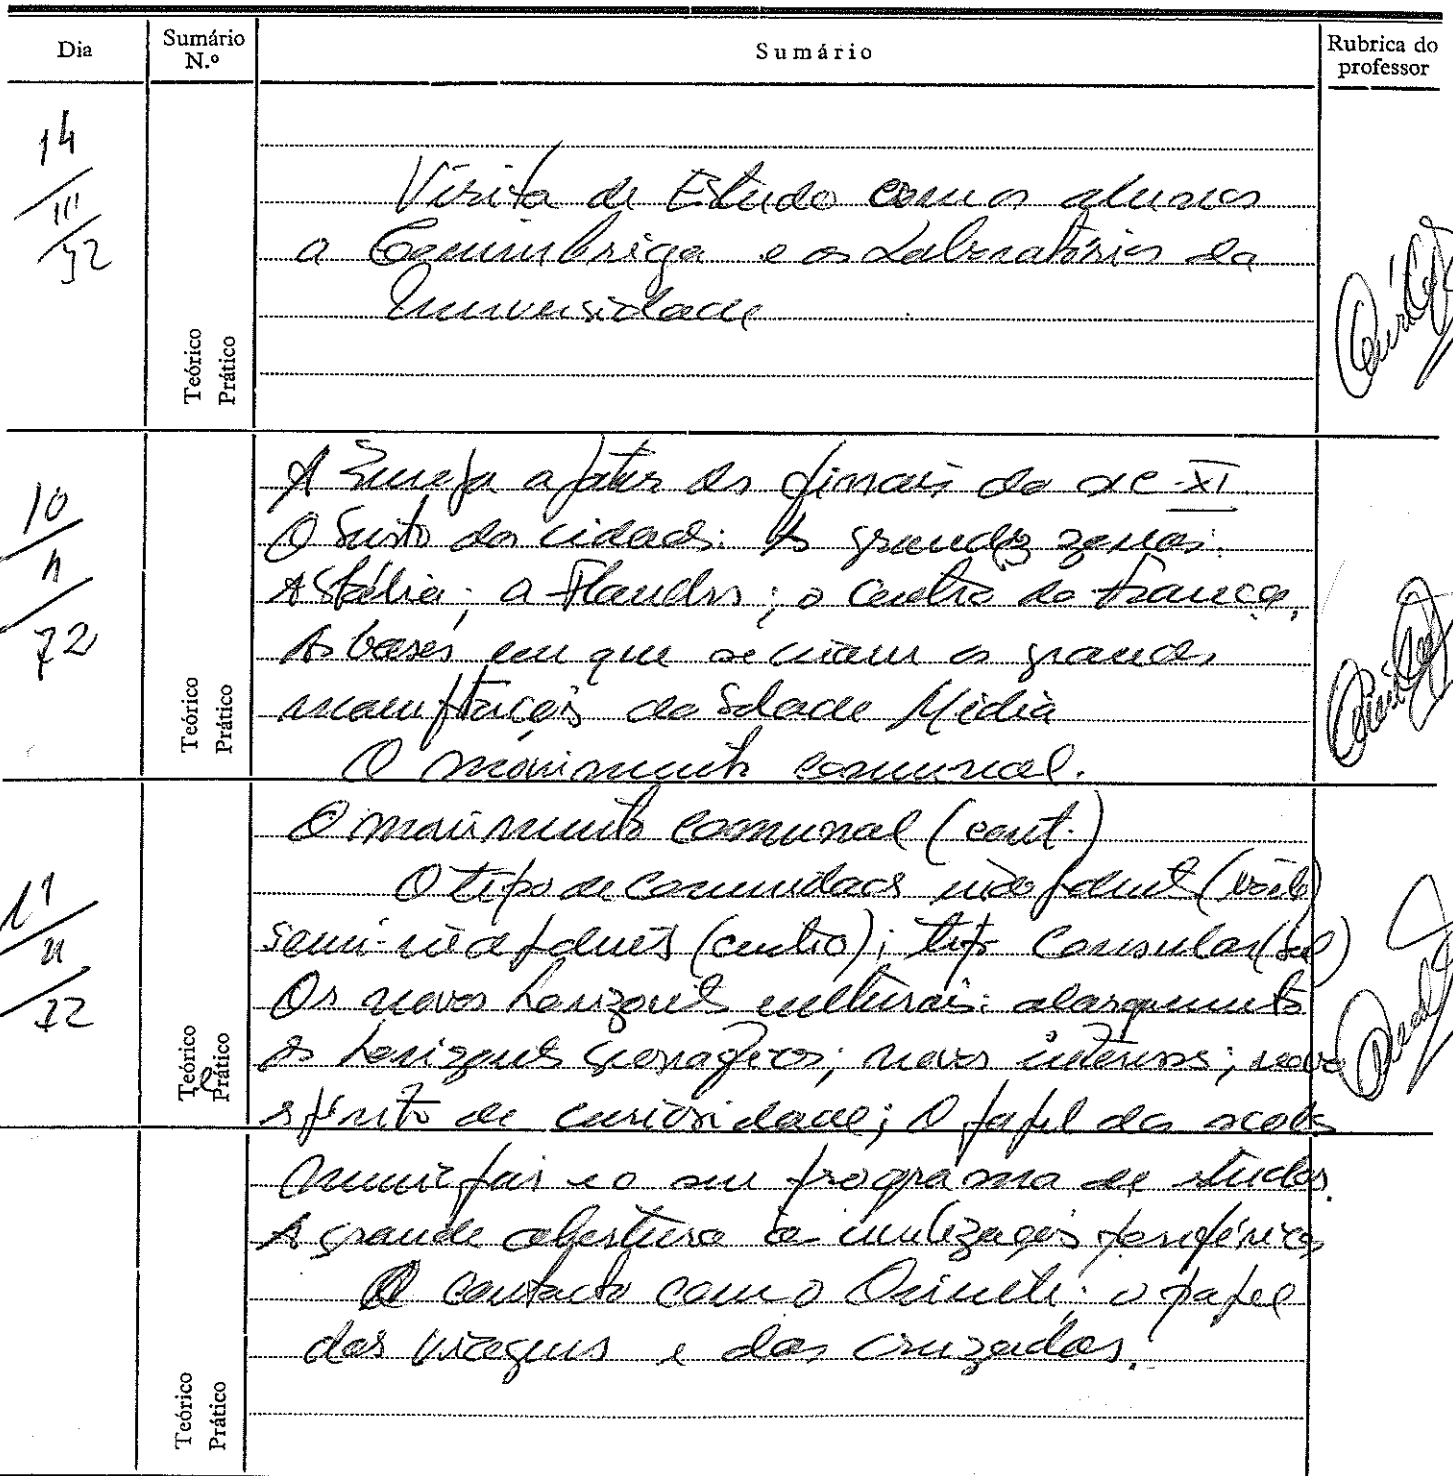 Dia
Sumário N.º
Sumário
Rubrica do professor
14
72
Visita de Estudo com os alunos
a Conimbriga e os Laboratórios da
Universidade
Teórico
Prático
10
11
72
A Europa a partir dos finais do sec XI.
O Surto das cidades: As grandes zonas:
A Itália; a Flandres; o Centro da França.
As bases em que se criam as grandes
manifestações da Idade Média
O movimento comunal.
Teórico
Prático
11
11
72
O movimento comunal (cont.)
O tipo de comunidades independente (norte)
semi-independentes (centro); tipo Consular (sul)
Os novos horizontes culturais: alargamento
dos horizontes geográficos; novos interesses; novo
espírito de curiosidade; O papel das escolas
Teórico
e
Prático
Municipais e o seu programa de estudos.
A grande abertura às civilizações periféricas
O contacto com o Oriente: o papel
das viagens e das cruzadas.
Teórico
Prático